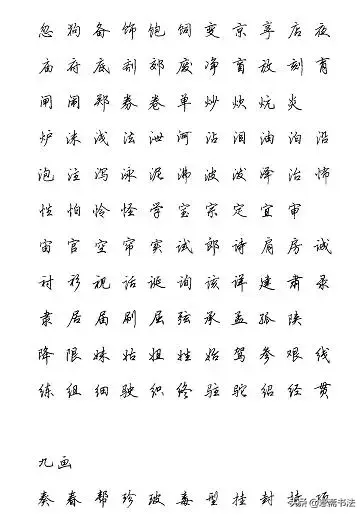 忽 狗 备 饰 饱 饲 变 京 享 店 夜
庙 府 底 剂 郊 废 净 盲 放 刻 育
闸 闹 郑 券 卷 单 炒 炊 炕 炎
炉 沫 浅 法 泄 河 沾 泪 油 泊 沿
泡 注 泻 泳 泥 沸 波 泼 泽 治 怖
性 怕 怜 怪 学 宝 宗 定 宜 审
宙 官 空 帘 实 试 郎 诗 肩 房 诚
衬 衫 视 话 诞 询 该 详 建 肃 录
隶 居 届 刷 屈 弦 承 孟 孤 陕
降 限 妹 姑 姐 姓 始 驾 参 艰 线
练 组 细 驶 织 终 驻 驼 绍 经 贯
九画
奏 春 帮 珍 玻 毒 型 挂 封 持 项